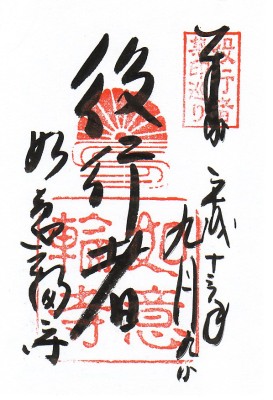 役行者
集印巡り
奉拝
平成十三年
九月九日
役行者
如意輪寺
如意
輪寺